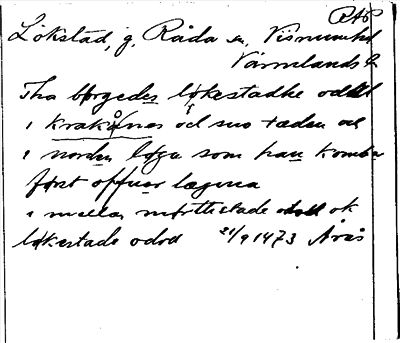 RAP
Lökstad, g, Råda sn, Visnums hd
Värmlands l.
Tha børgedes løkestadhe oddel
i krakånes och suo tæden och
i norden løgu som han kombr
først opfuor lægena
i mellan mørttestade odell ok
løkestade odod 21/9 1473 Årås